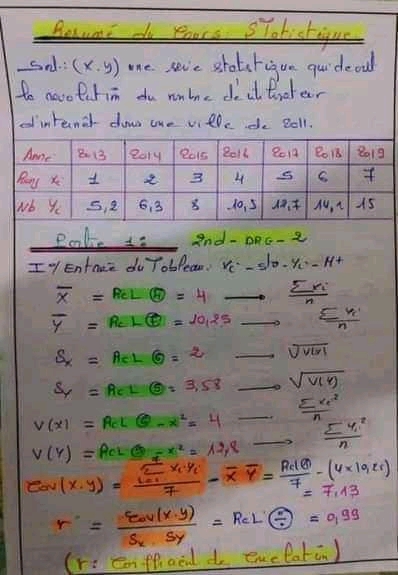 Resumé du Cours: Statistique
Soit: (x.y) une serie statistique qui decrit
la revolution du nombre d'utilisateur
d'internet dans une ville de 2011.
Anne 2013 2014 2015 2016 2017 2018 2019
Rang xi 1 2 3 4 5 6 7
Nb Yi 5,2 6,3 8 10,3 12,7 14,1 15
Partie 1: 2nd-DRG-2
I% Entrée du Tableau: Xi-sto-Yi-M+
X̄ = RCL 4 → Σxi/n
Ȳ = RCL = 10,25 → Σyi/n
Sx = RCL = 2 → √V(x)
Sy = RCL = 3,58 → √V(Y)
V(x) = RCL - x² = 4 → Σxi²/n
V(Y) = RCL - x² = 12,8 → Σyi²/n
Cov(x.y) = Σ xi yi / 7 - X̄ Ȳ = RCL /7 - (4×10,25)
= 7,13
r = Cov(x.y) / Sx Sy = RCL ÷ = 0,99
(r: coefficient de correlation)